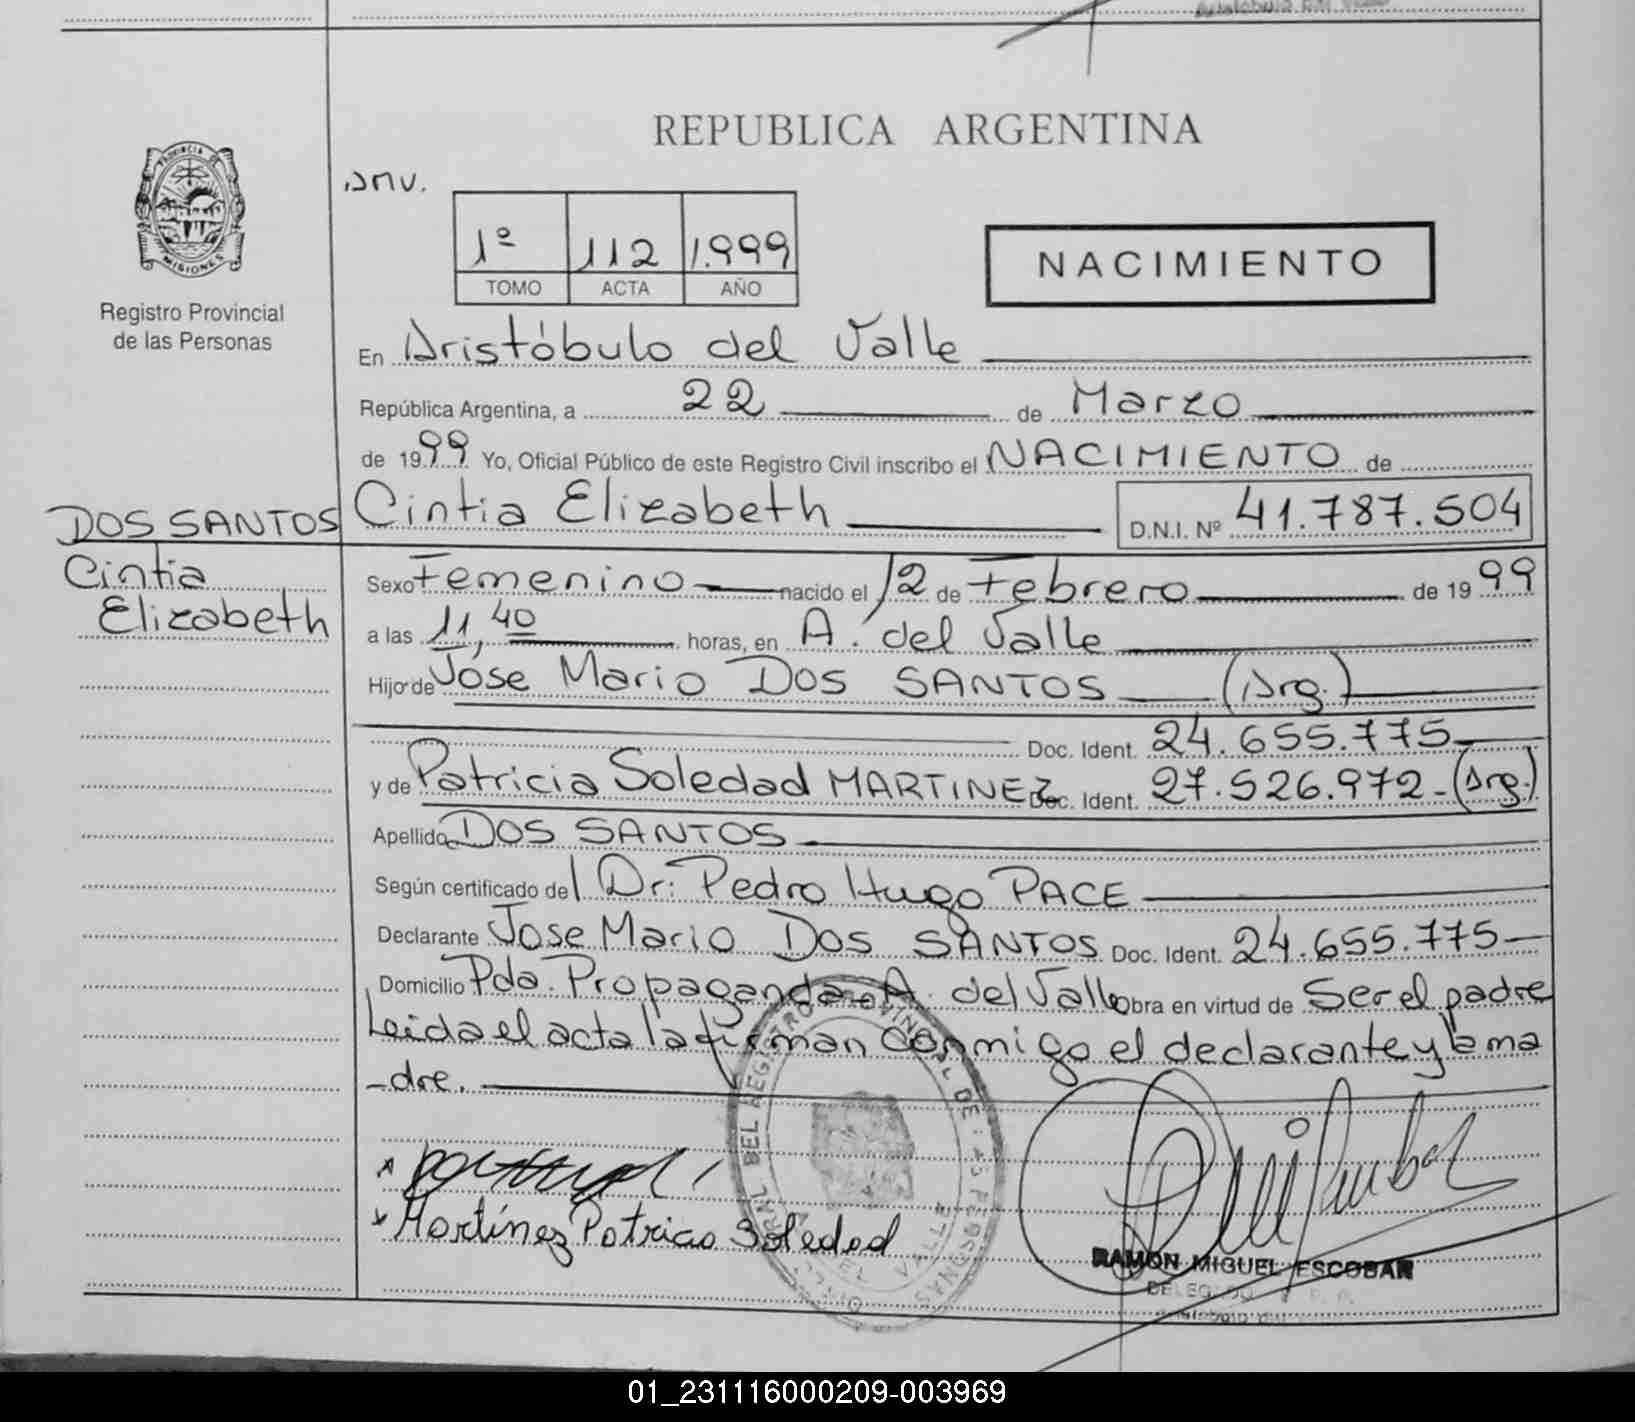 REPUBLICA ARGENTINA
PROVINCIA DE
MISIONES
Registro Provincial
de las Personas
1º 112 1.999
TOMO ACTA AÑO
NACIMIENTO
En Aristóbulo del Valle
República Argentina, a 22 de Marzo
de 1999 Yo, Oficial Público de este Registro Civil inscribo el NACIMIENTO de
DOS SANTOS
Cintia
Elizabeth
Cintia Elizabeth D.N.I. Nº 41.787.504
Sexo Femenino nacido el 12 de Febrero de 1999
a las 11,40 horas, en A. del Valle
Hijo de José Mario DOS SANTOS (Arg.)
Doc. Ident. 24.655.775
y de Patricia Soledad MARTINEZ Doc. Ident. 27.526.972-(Arg.)
Apellido DOS SANTOS
Según certificado del Dr: Pedro Hugo PACE
Declarante Jose Mario DOS SANTOS Doc. Ident. 24.655.775
Domicilio Pda. Propaganda-A. del Valle obra en virtud de Ser el padre
Leida el acta la firman conmigo el declarante y la ma
-dre.
Martínez Patricia Soledad
RAMON MIGUEL ESCOBAR
01_231116000209-003969